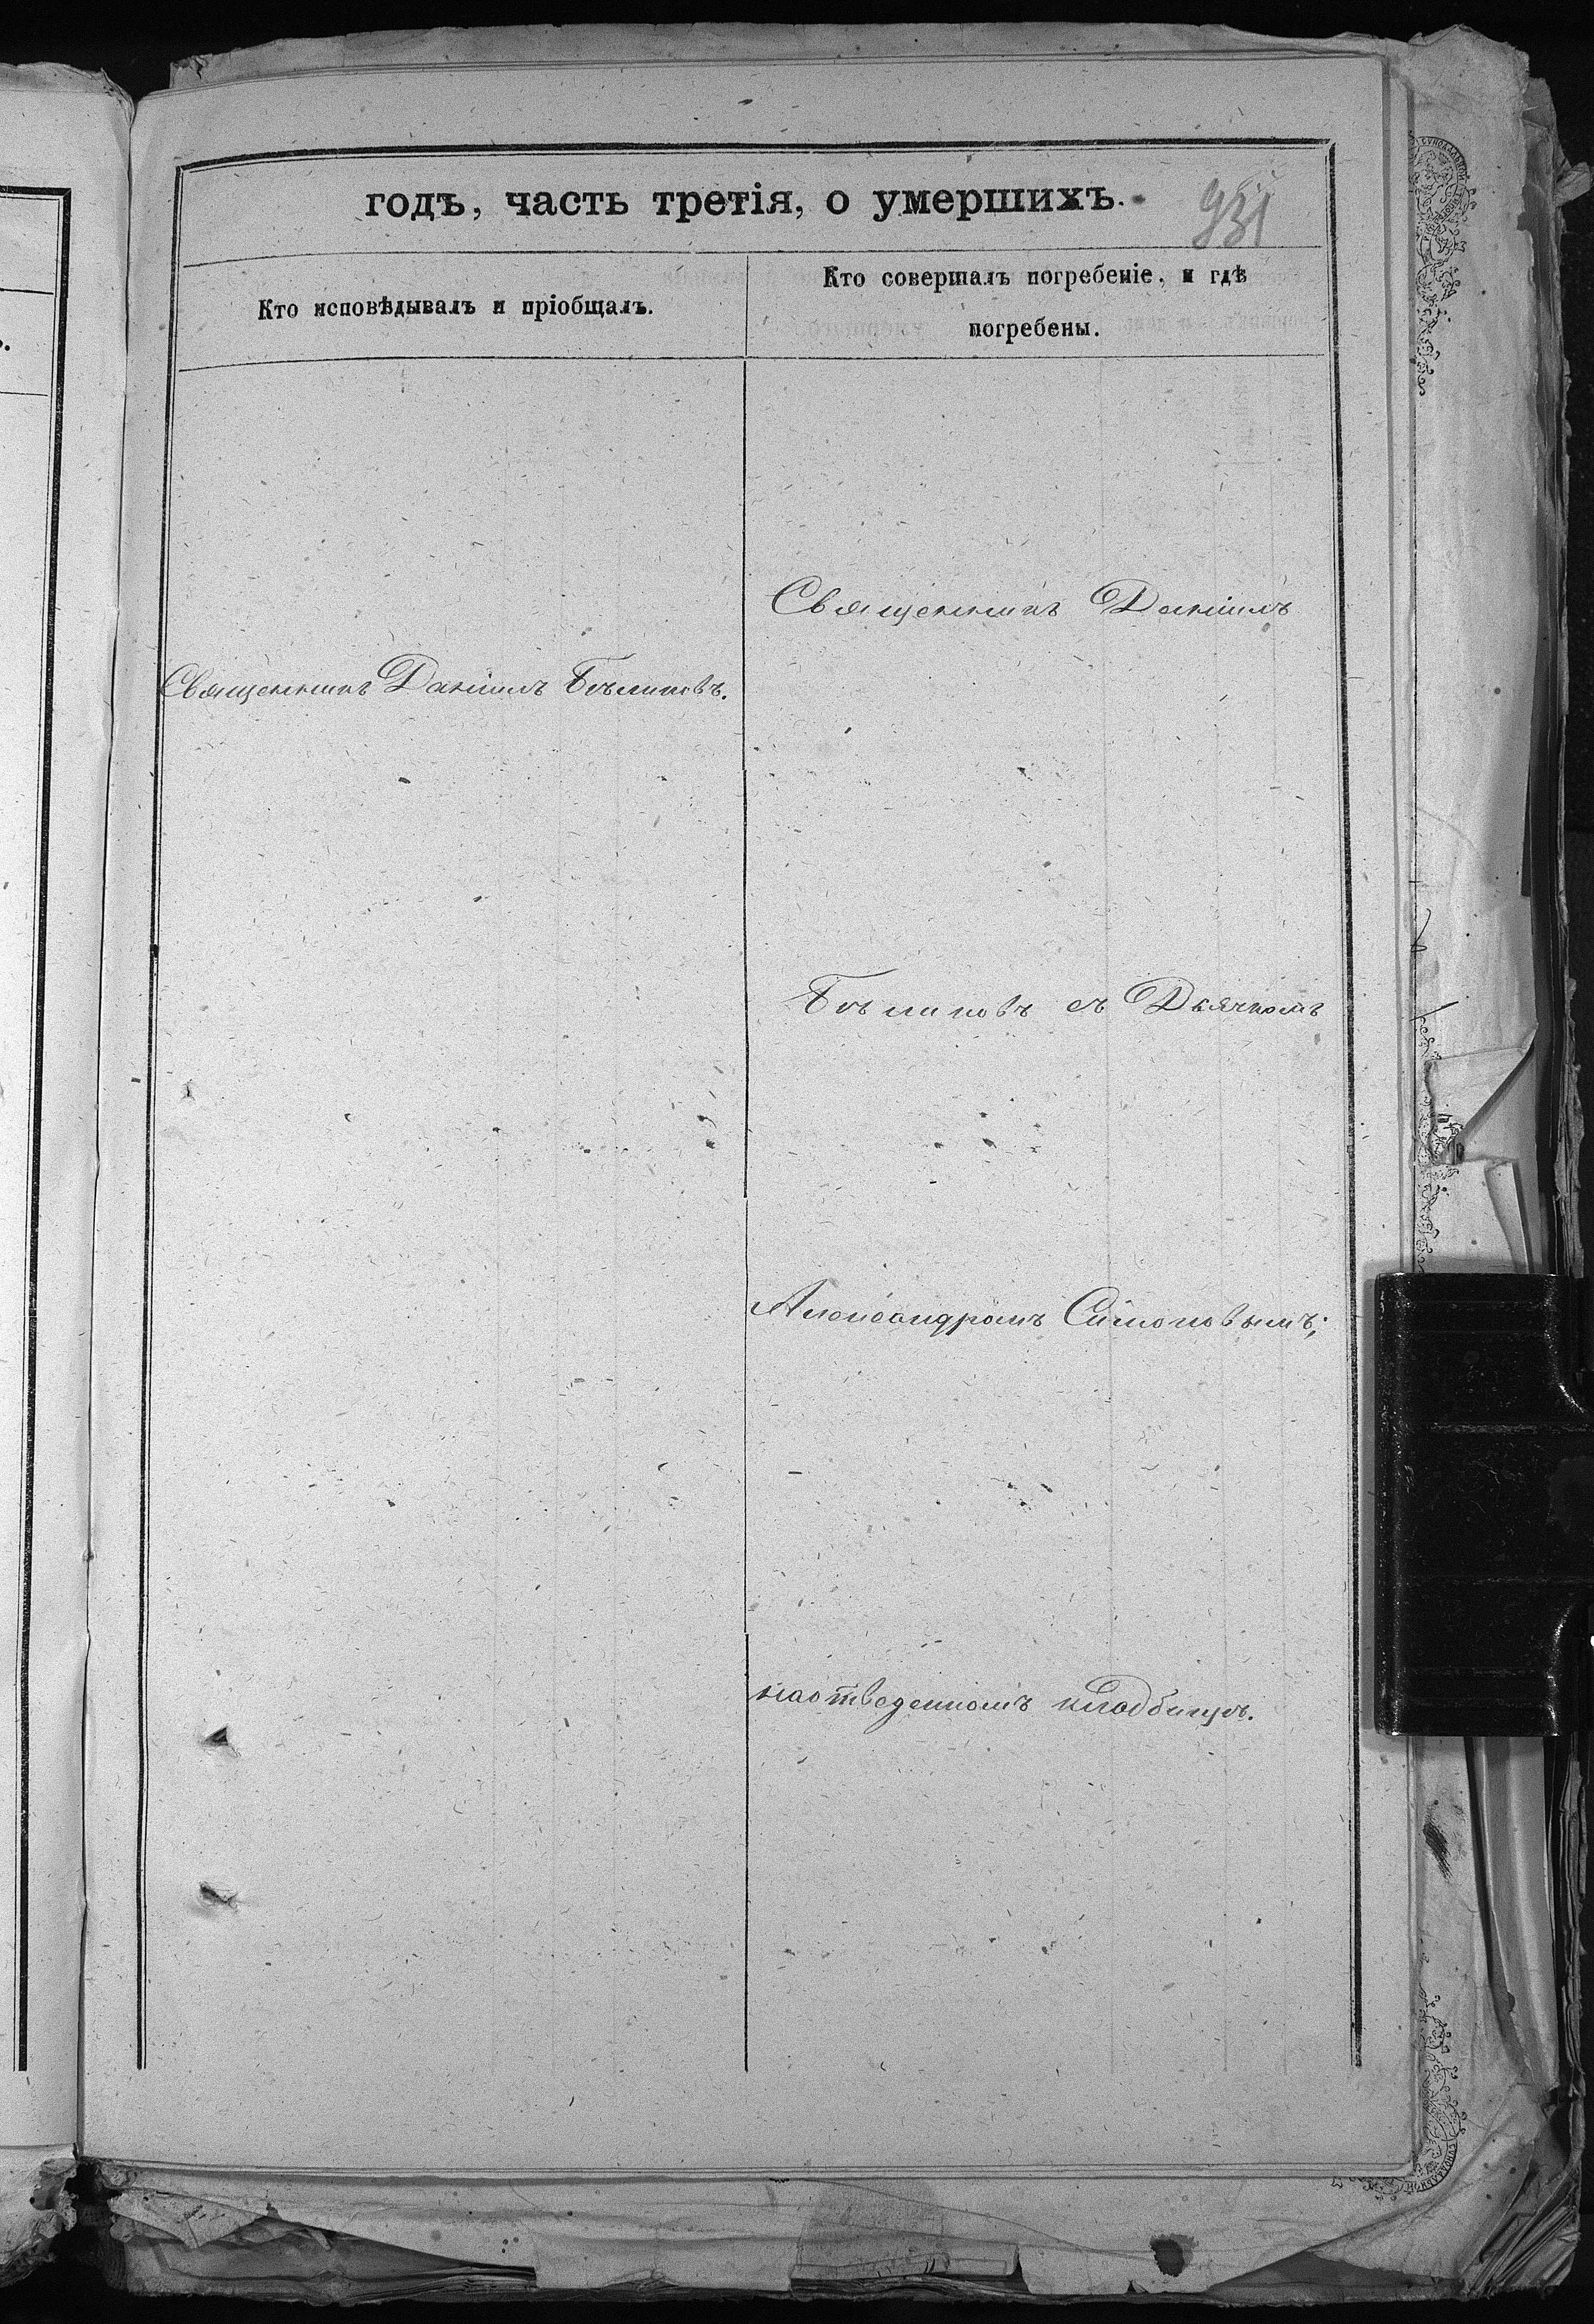 годъ, часть третія, о умершихъ.
931
Кто исповѣдывалъ и пріобщалъ.
Кто совершалъ погребеніе, и гдѣ
погребены.
Священникъ Даніилъ
Священникъ Даніилъ Бѣликовъ.
Бѣликовъ съ Дьячкомъ
Александромъ Симоновымъ;
на отведенномъ кладбищѣ.